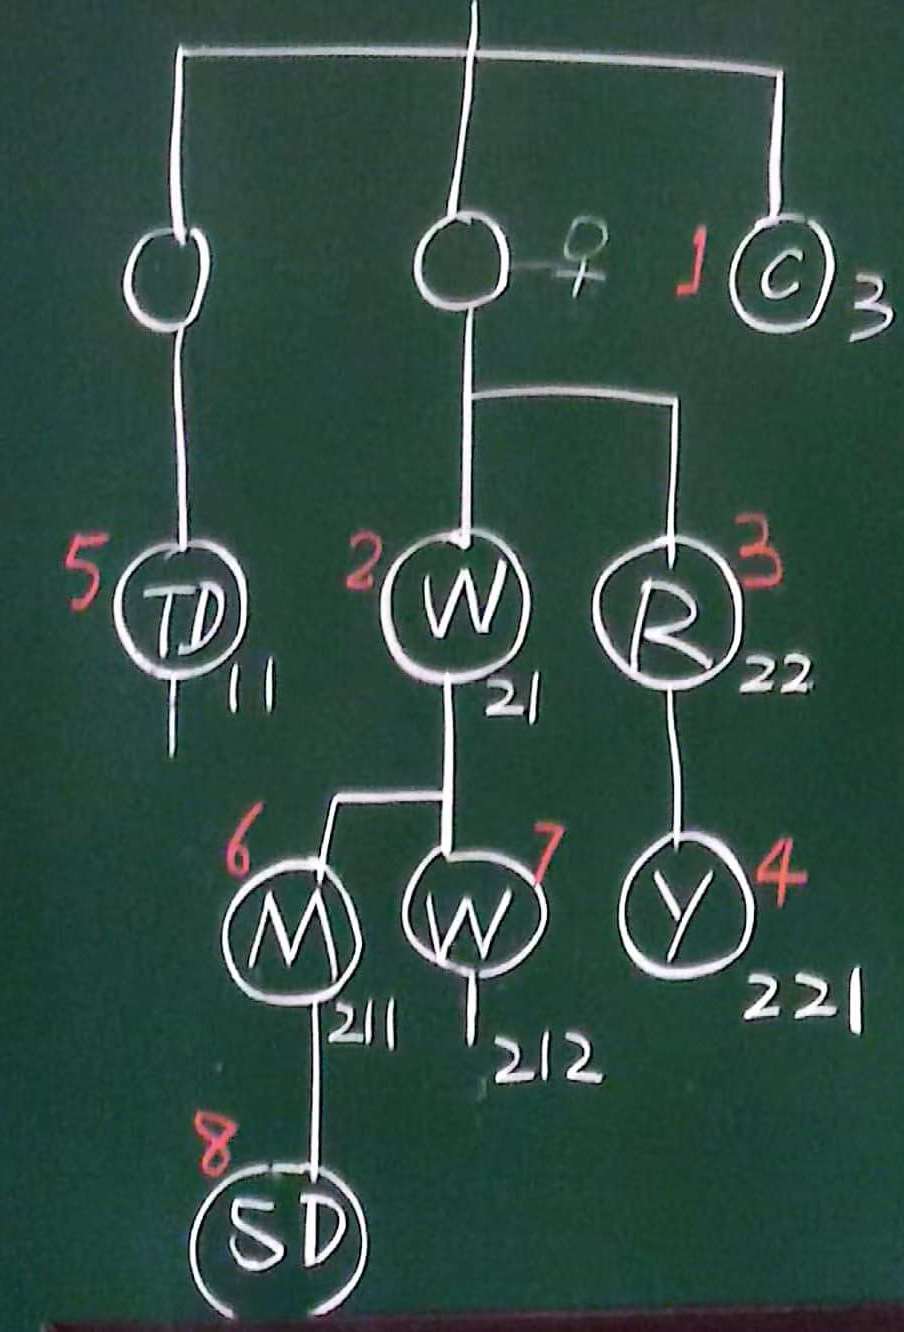 ♀
1 C 3
5 TD 11
2 W 21
3 R 22
6 M 211
7 W 212
4 Y 221
8 SD